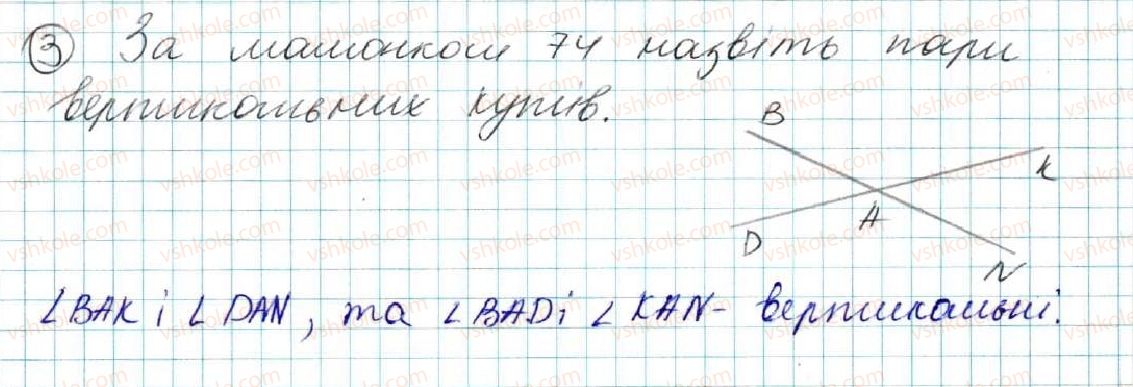 3 За малюнком 74 назвіть пари
вертикальних кутів.
B
K
A
D
N
∠BAK і ∠DAN, та ∠BAD і ∠KAN - вертикальні.